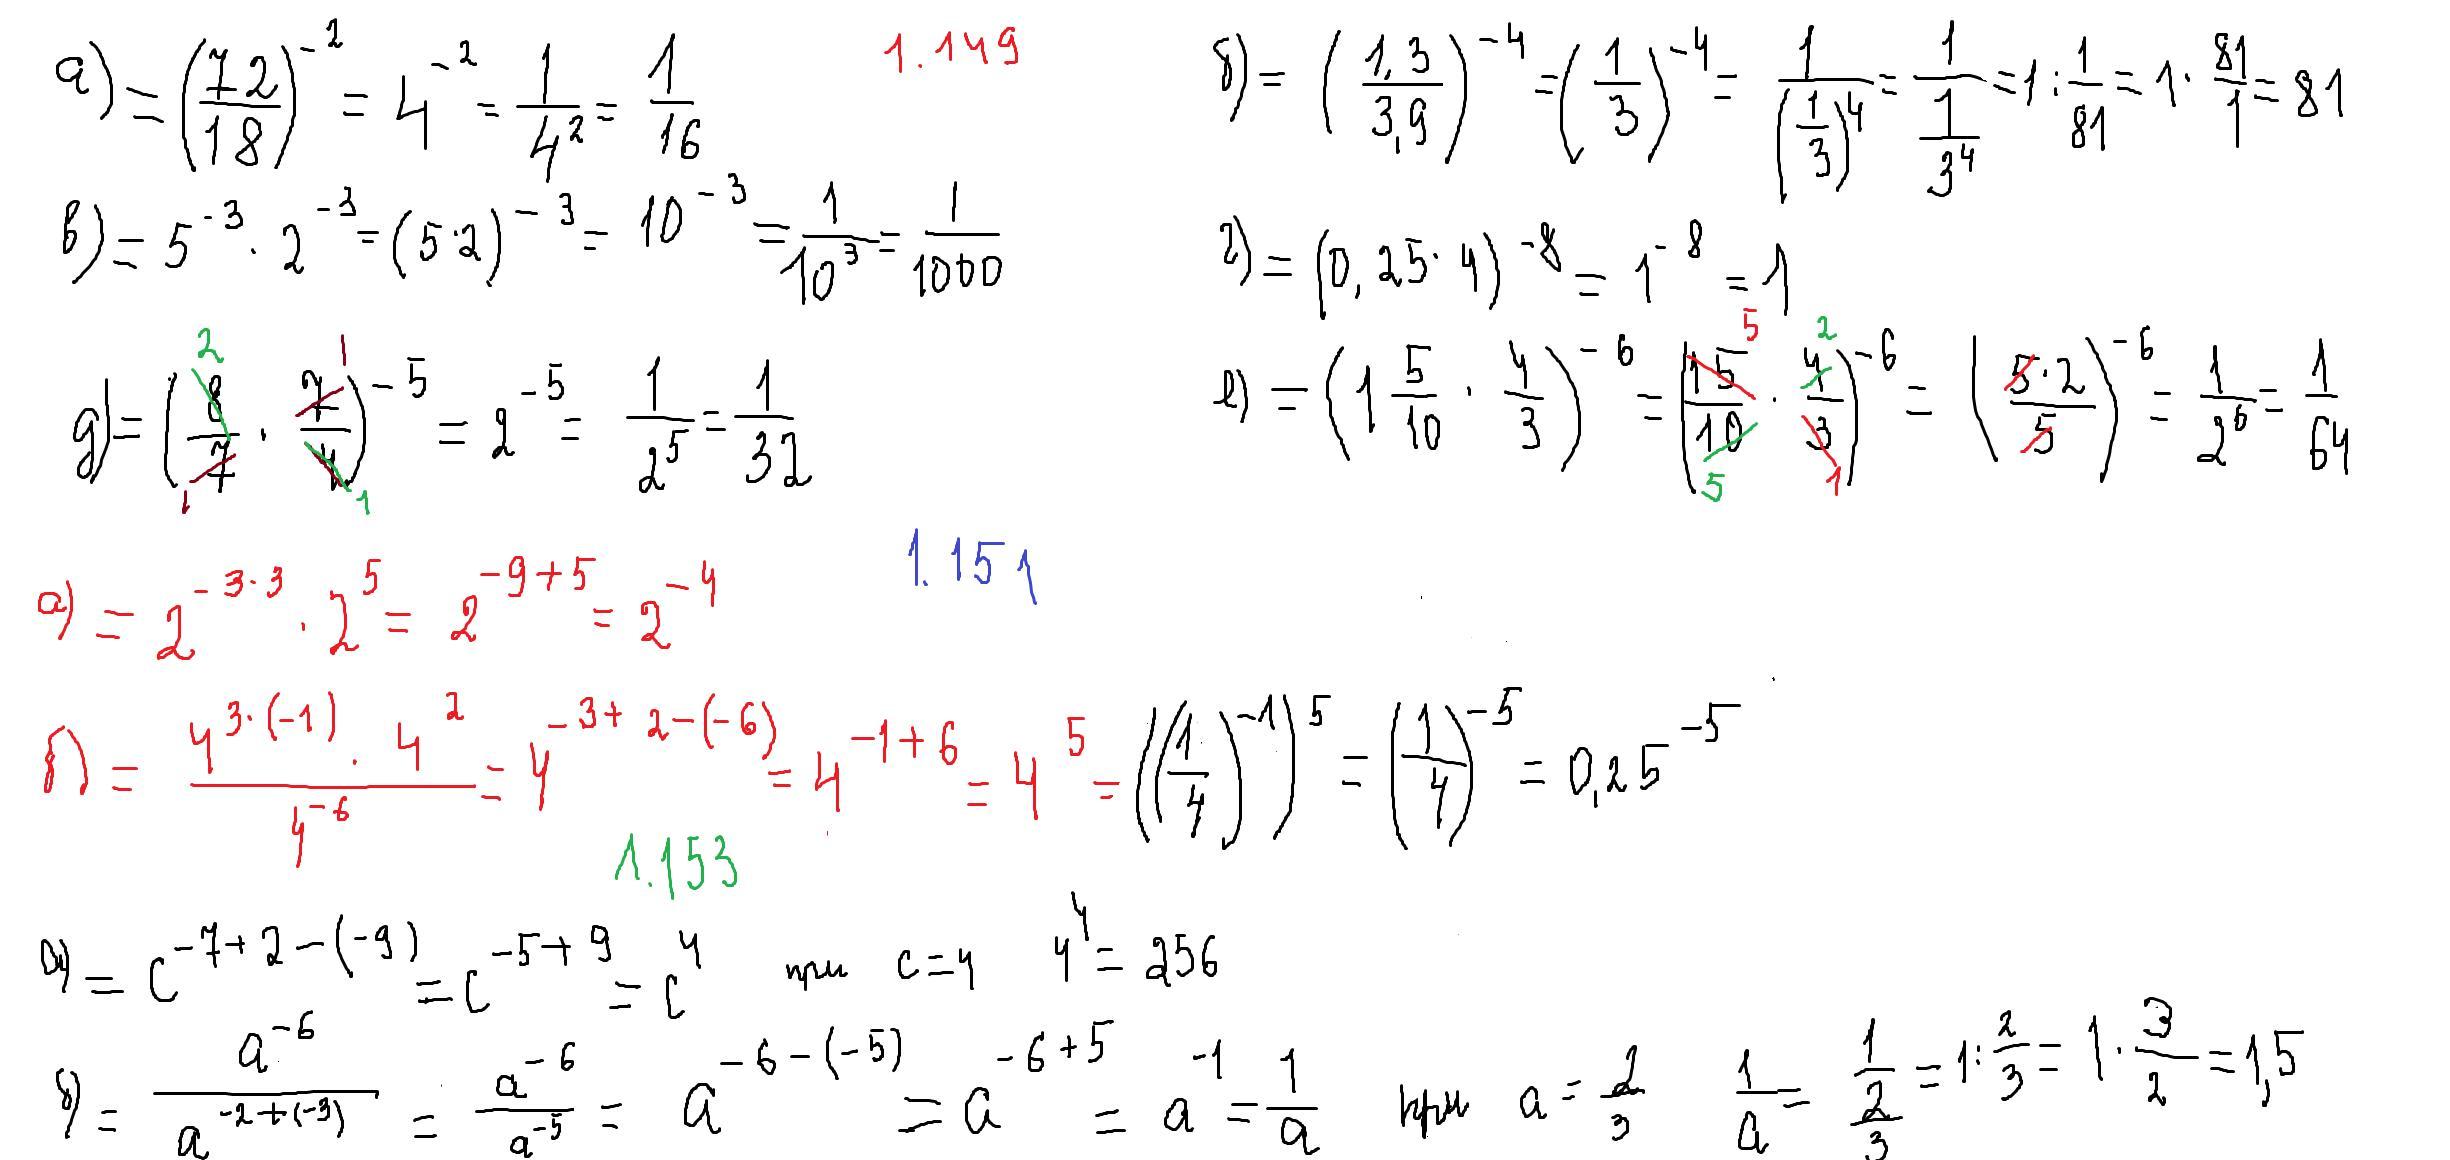 1.149
а) = (72/18)^-2 = 4^-2 = 1/4^2 = 1/16
б) = (1,3/3,9)^-4 = (1/3)^-4 = 1/(1/3)^4 = 1/(1/3^4) = 1 : 1/81 = 1 · 81/1 = 81
в) = 5^-3 · 2^-3 = (5·2)^-3 = 10^-3 = 1/10^3 = 1/1000
г) = (0,25 · 4)^-8 = 1^-8 = 1
д) = (8/7 · 7/4)^-5 = 2^-5 = 1/2^5 = 1/32
2 1 1 1
е) = (1 5/10 · 4/3)^-6 = (15/10 · 4/3)^-6 = (5·2/5)^-6 = 1/2^6 = 1/64
5 2 5 1
1.151
а) = 2^-3·3 · 2^5 = 2^-9+5 = 2^-4
б) = 4^3·(-1) · 4^2/4^-6 = 4^-3+2-(-6) = 4^-1+6 = 4^5 = ((1/4)^-1)^5 = (1/4)^-5 = 0,25^-5
1.153
а) = c^-7+2-(-9) = c^-5+9 = c^4 при c=4 4^4 = 256
б) = a^-6/a^-2+(-3) = a^-6/a^-5 = a^-6-(-5) = a^-6+5 = a^-1 = 1/a при a = 2/3 1/a = 1/(2/3) = 1 : 2/3 = 1 · 3/2 = 1,5